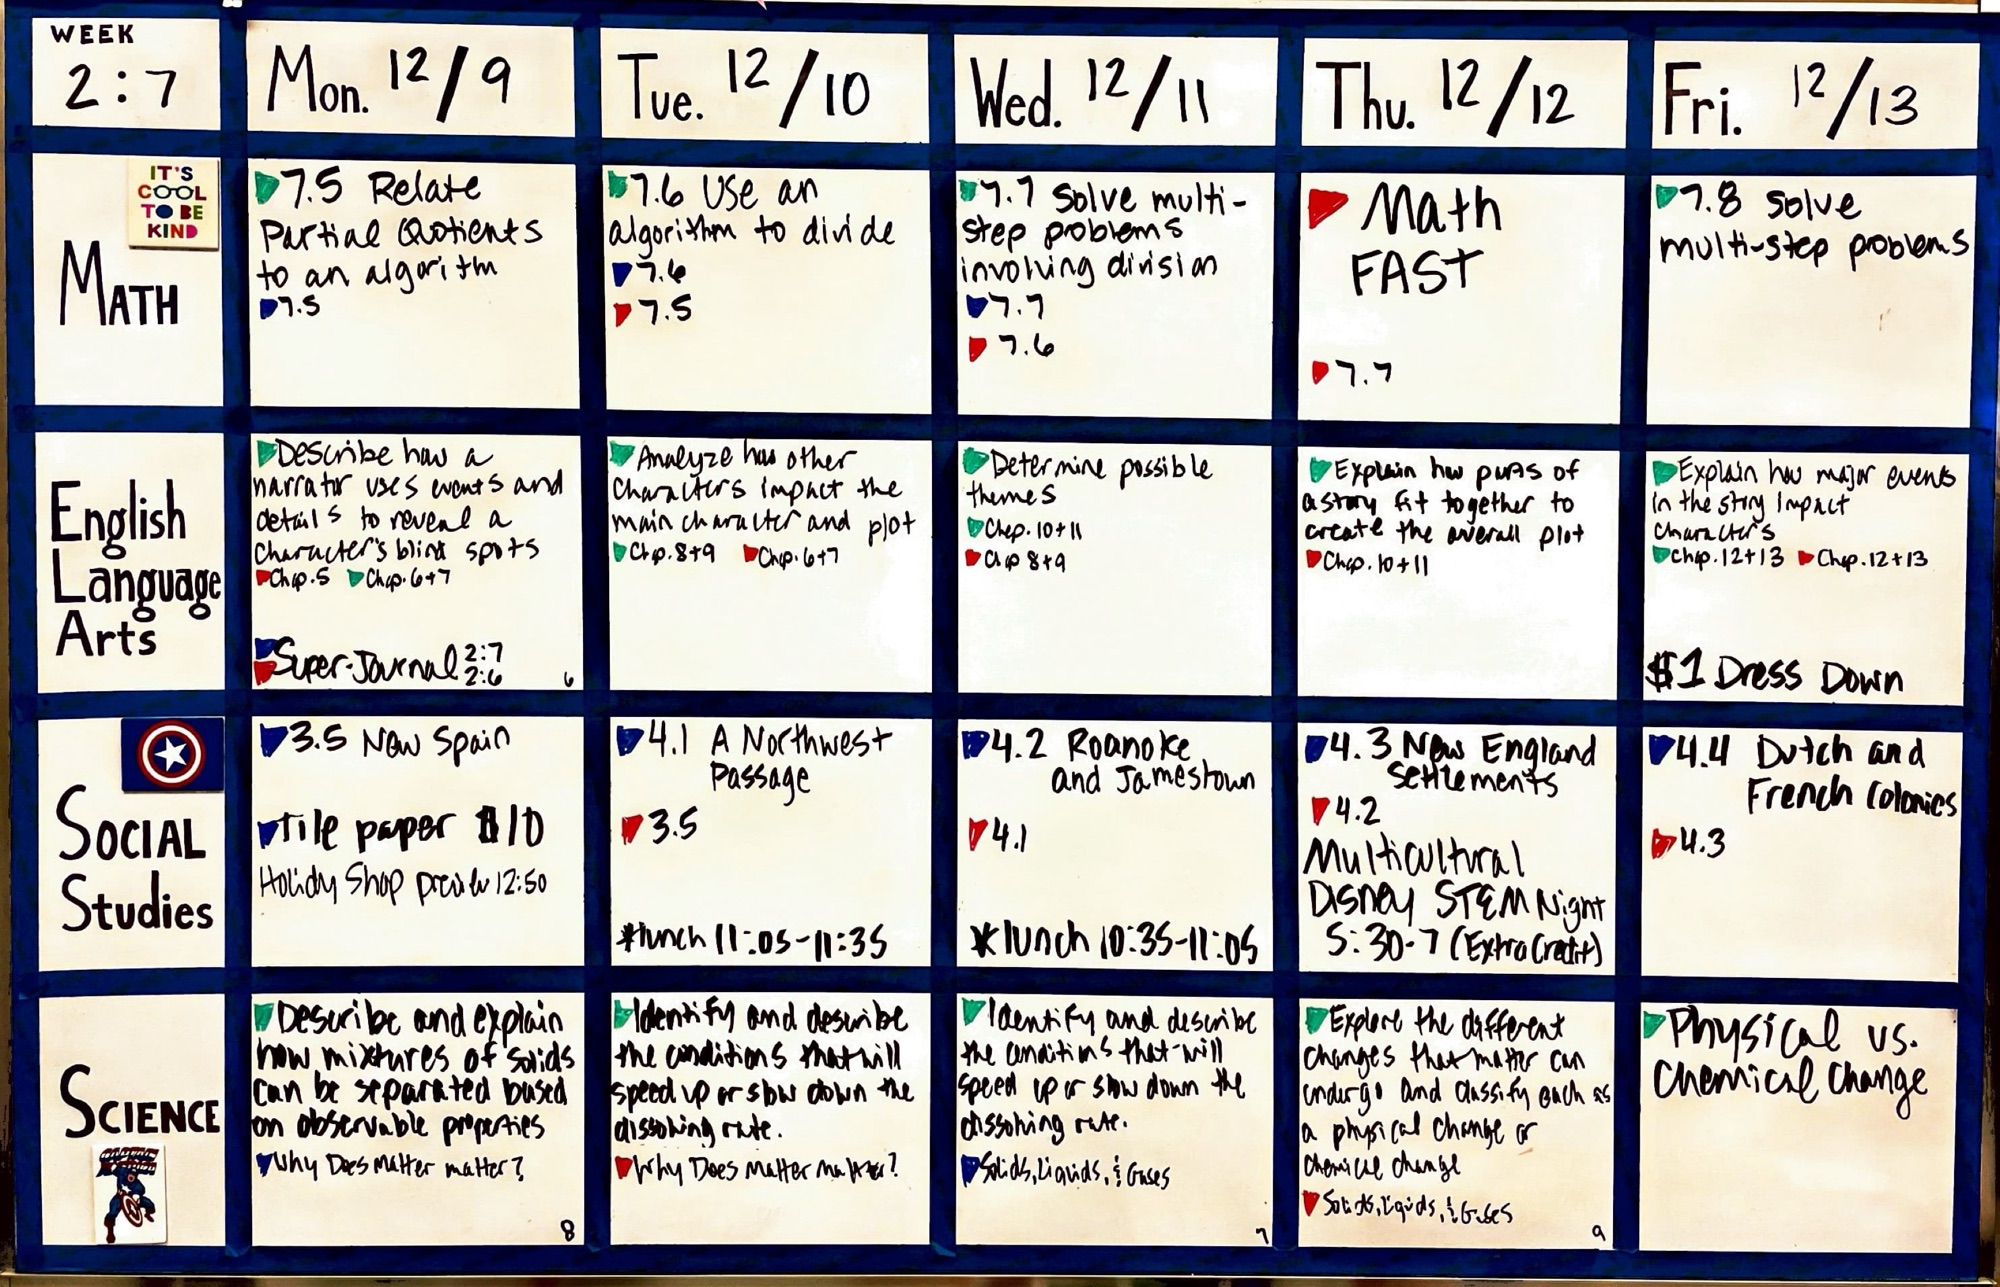 WEEK
2:7
Mon. 12/9
Tue. 12/10
Wed. 12/11
Thu. 12/12
Fri. 12/13
IT'S
COOL
TO BE
KIND
MATH
7.5 Relate
Partial Quotients
to an algorithm
7.5
7.6 Use an
algorithm to divide
7.6
7.5
7.7 Solve multi-
step problems
involving division
7.7
7.6
Math
FAST
7.7
7.8 solve
multi-step problems
English
Language
Arts
Describe how a
narrator uses events and
details to reveal a
character's blind spots
Chap. 5 Chap. 6+7
Super-Journal 2:7
2:6
6
Analyze how other
characters impact the
main character and plot
Chp. 8+9 Chap. 6+7
Determine possible
themes
Chap. 10+11
Chap 8+9
Explain how parts of
a story fit together to
create the overall plot
Chap. 10+11
Explain how major events
in the story impact
characters
Chap. 12+13 Chap. 12+13
$1 Dress Down
SOCIAL
Studies
3.5 New Spain
Tile paper $10
Holidy Shop preview 12:50
4.1 A Northwest
Passage
3.5
*lunch 11:05-11:35
4.2 Roanoke
and Jamestown
4.1
*lunch 10:35-11:05
4.3 New England
Settlements
4.2
Multicultural
Disney STEM Night
5:30-7 (Extra Credit)
4.4 Dutch and
French Colonies
4.3
SCIENCE
Describe and explain
how mixtures of solids
can be separated based
on observable properties
Why Does Matter matter?
8
Identify and describe
the conditions that will
speed up or slow down the
dissolving rate.
Why Does Matter matter?
Identify and describe
the conditions that will
speed up or slow down the
dissolving rate.
Solids, Liquids, & Gases
7
Explore the different
changes that matter can
undergo and classify each as
a physical change or
chemical change
Solids, liquids, & Gases
9
Physical vs.
Chemical Change